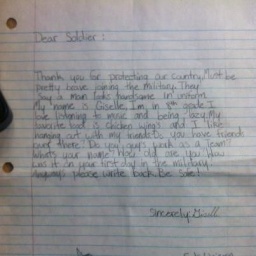 Dear Soldier:
Thank you for protecting our country. Must be
pretty brave joining the military. They
say a man looks handsome in uniform.
My name is Giselle. I'm in 8th grade I
love listening to music and being lazy. My
favorite food is chicken wings and I like
hanging out with my friends. Do you have friends
over there? Do you guys work as a team?
Whats your name? How old are you How
was it on your first day in the military
please write back. Be Safe!
Sincerely: